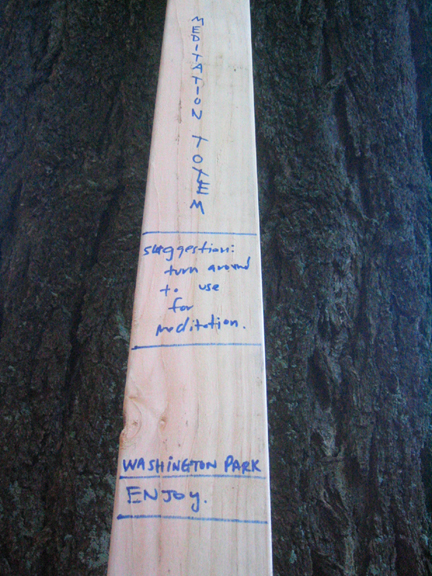 MEDITATION TOTEM
suggestion:
turn around
to use
for
meditation.
WASHINGTON PARK
ENJOY.